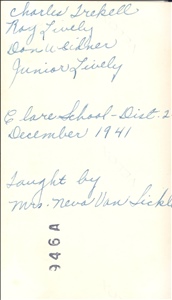 Charles Trekell
Roy Lively
Don W Eidner
Junior Lively
Elare School - Dist. 2
December 1941
Taught by
Mrs. Neva Van Sickl
946A